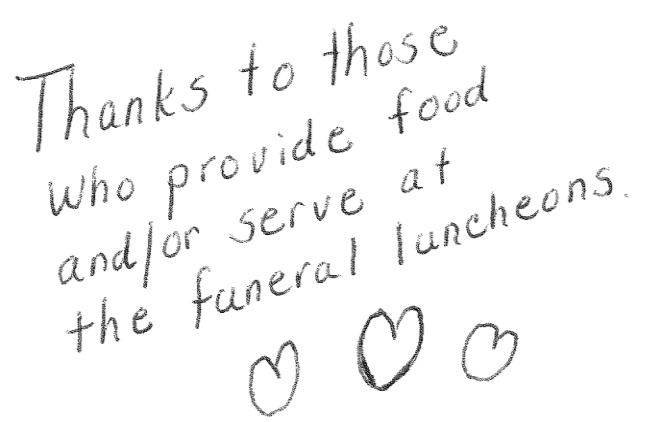 Thanks to those
who provide food
and/or serve at
the funeral luncheons.